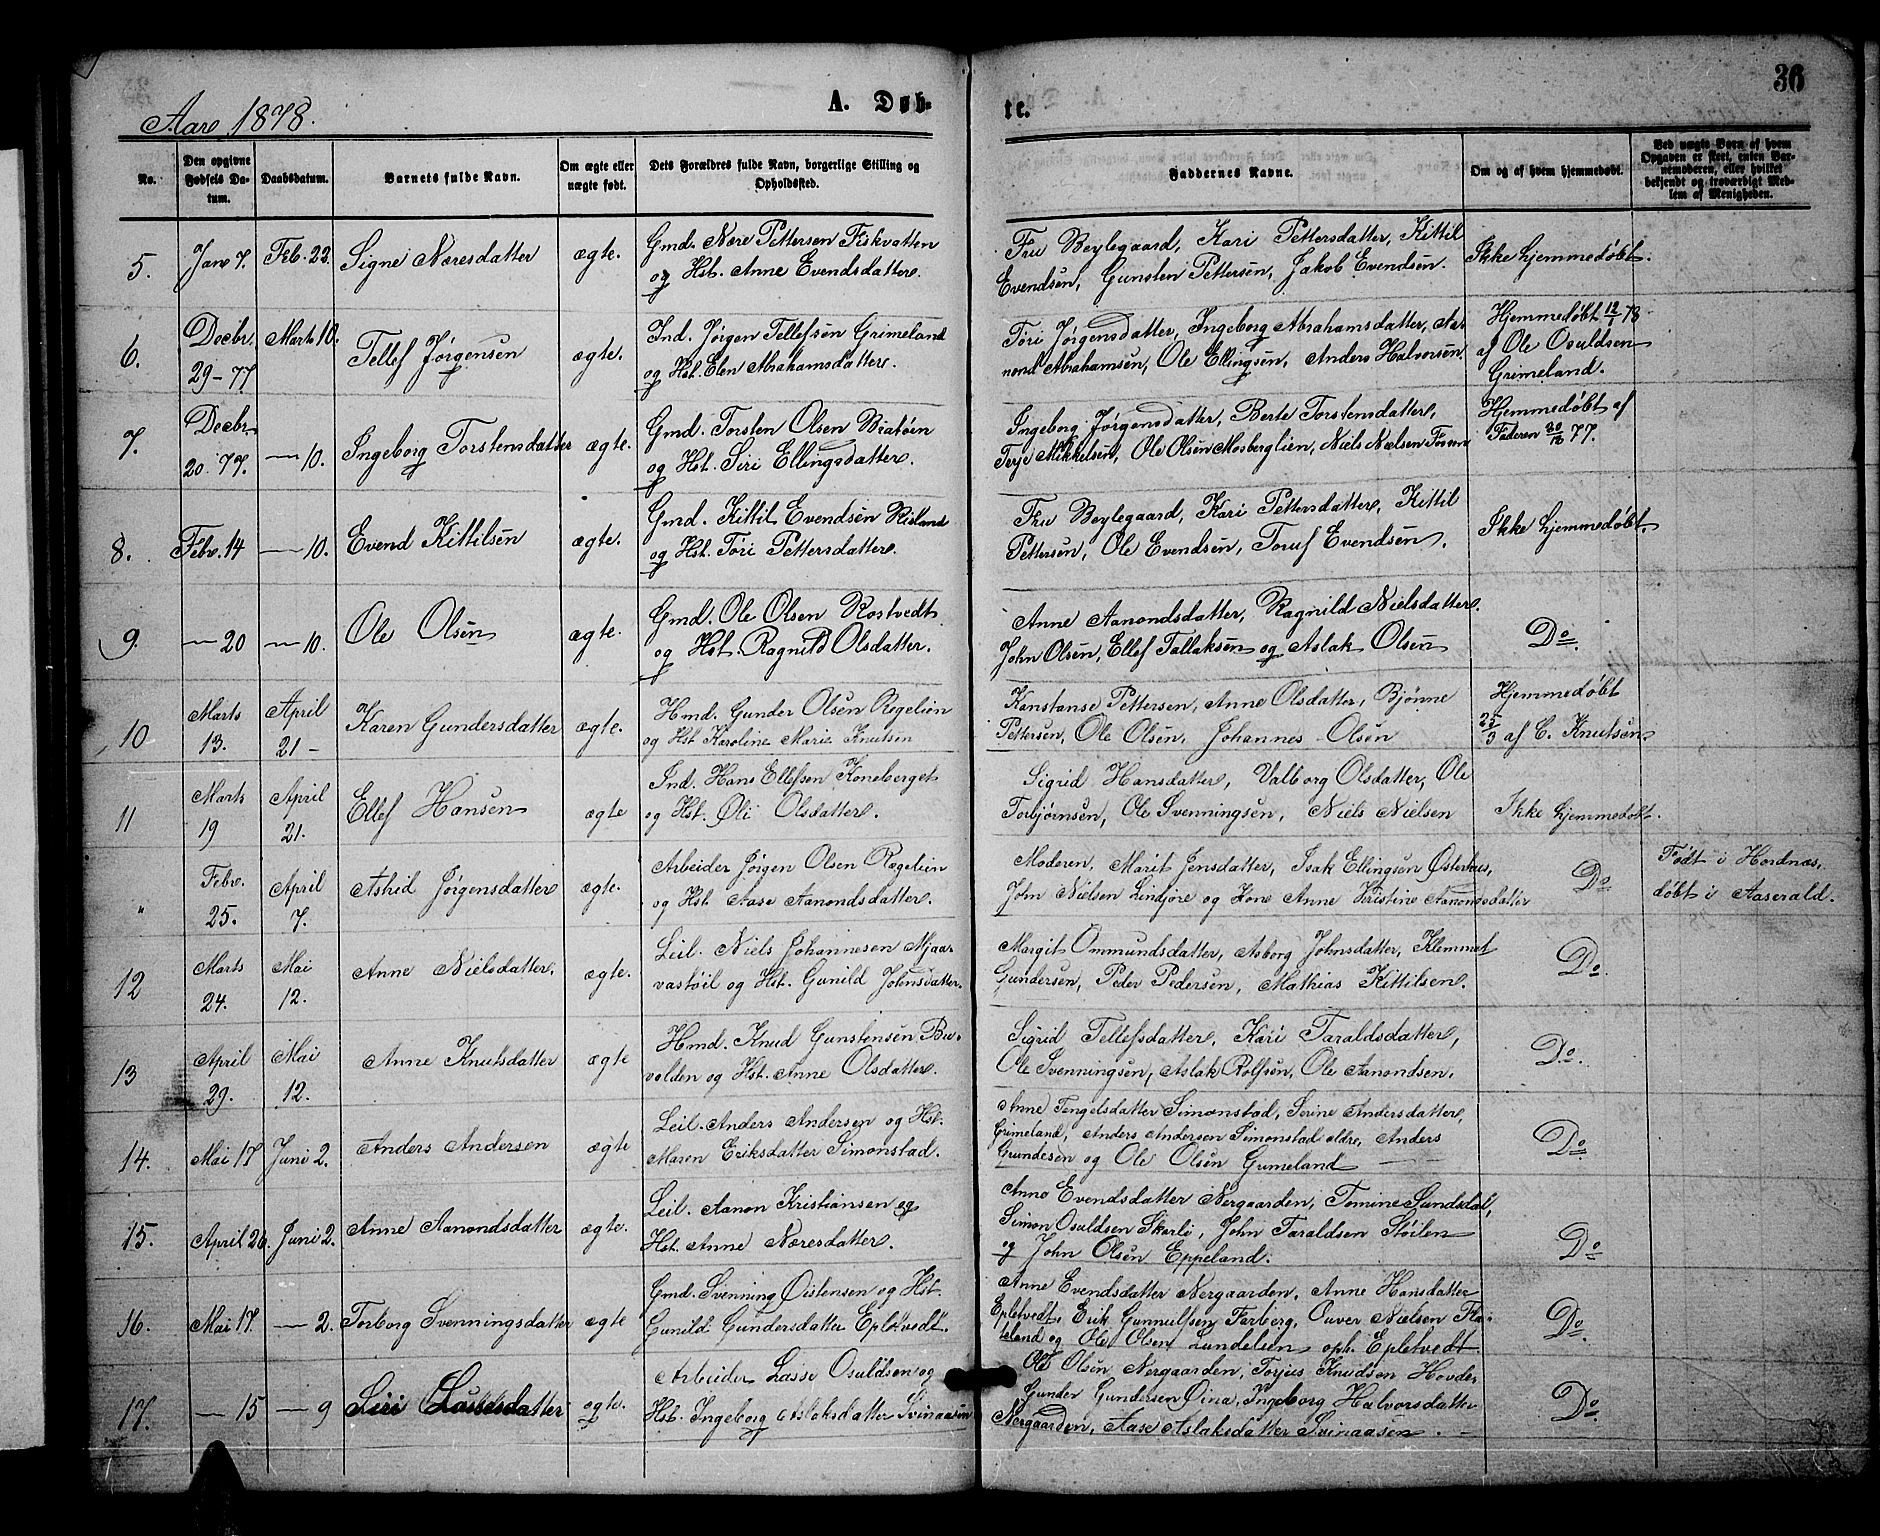 36
Aare 1878.
A. Døb-
te.
No.
Den opgivne Fødsels Da-tum.
Daabsdatum.
Barnets fulde Navn.
Om ægte eller uægte født.
Dets Forældres fulde Navn, borgerlige Stilling og Opholdssted.
Faddernes Navne.
Om og af hvem hjemmedøbt.
Ved uægte Børn af hvem Opgaven er skeet, enten Bar-nemoderen, eller hvilket bekjendt og troværdigt Med-lem af Menigheden.
5. Jan. 7. Feb. 22. Signe Næresdatter ægte.
Gmd. Nære Pettersen Fiskvatten
og Hst. Anne Evendsdatter.
Fru Beylegaard, Kari Pettersdatter, Kittil
Evendsen, Gunsten Pettersen, Jakob Evendsen.
Ikke hjemmedøbt.
6. Decbr. 29-77 Marts 10. Tellef Jørgensen ægte.
Ind. Jørgen Tellefsen Grimeland
og Hst. Elen Abrahamsdatter.
Tori Jørgensdatter, Ingeborg Abrahamsdatter, Aa-
nond Abrahamsen, Ole Ellingsen, Anders Halvorsen.
Hjemmedøbt 12/1 78
af Ole Osuldsen
Grimeland.
7. Decbr. 20. 77. — 10. Ingeborg Torstensdatter ægte.
Gmd. Torsten Olsen
og Hst. Siri Ellingsdatter.
Ingeborg Jørgensdatter, Berte Torstensdatter,
Terje Mikkelsen, Ole Olsen Mosberglien, Niels Nielsen
Hjemmedøbt af
Faderen 30/12 77.
8. Febr. 14 — 10. Evend Kittilsen ægte.
Gmd. Kittil Evendsen Risland
og Hst. Tori Pettersdatter.
Fru Beylegaard, Kari Pettersdatter, Kittil
Pettersen, Ole Evendsen, Toruf Evendsen.
Ikke hjemmedøbt.
9. — 20 — 10. Ole Olsen ægte.
Gmd. Ole Olsen Rostvedt
og Hst. Ragnild Olsdatter.
Anne Aanondsdatter, Ragnild Nielsdatter.
John Olsen, Ellef Tallaksen og Aslak Olsen
Do.
10 Marts 13. April 21 - Karen Gundersdatter ægte.
Hmd. Gunder Olsen Regelien
og Hst Karoline Marie Knutsen
Konstanse Pettersen, Anne Olsdatter, Bjønne
Pettersen, Ole Olsen, Johannes Olsen
Hjemmedøbt
25/3 af C. Knutsen.
11 Marts 19 April 21. Ellef Hansen ægte
Ind. Hans Ellefsen Koneberget
og Hst. Oli Olsdatter.
Sigrid Hansdatter, Valborg Olsdatter, Ole
Torbjørnsen, Ole Svenningsen, Niels Nielsen
Ikke hjemmedøbt.
" Febr. 25. April 7. Astrid Jørgensdatter ægte.
Arbeider Jørgen Olsen Regelien
og Hst. Aase Aanondsdatter.
Moderen, Marit Jensdatter, Isak Ellingsen Østerhus,
John Nielsen Lindjøre og Kone Anne Kristine Aanondsdatter
Do.
Født i Hordnæs,
døbt i Aaserald.
12 Marts 24. Mai 12. Anne Nielsdatter. ægte.
Leil. Niels Johannesen Mjaa-
vastøil og Hst. Gunild Johnsdatter.
Margit Ommundsdatter, Asborg Johnsdatter, Klemmet
Gundersen, Peder Pedersen, Mathias Kittilsen.
Do.
13 April 29. Mai 12. Anne Knutsdatter ægte
Hmd. Knud Gunstensen Bu-
volden og Hst. Anne Olsdatter.
Sigrid Tellefsdatter, Kari Taraldsdatter,
Ole Svenningsen, Aslak Rolfsen, Ole Aanondsen.
Do.
14. Mai 17 Juni 2. Anders Andersen ægte
Leil. Anders Andersen og Hst.
Maren Eriksdatter Simonstad.
Anne Tengelsdatter Simonstad, Serine Andersdatter,
Grimeland, Anders Andersen Simonstad ældre, Anders
Grundesen og Ole Olsen Grimeland
Do.
15. April 26. Juni 2. Anne Aanondsdatter ægte.
Leil. Aanon Kristiansen og
Hst. Anne Næresdatter.
Anne Evendsdatter Nergaarden, Tomine Sundsdal,
Simon Osuldsen Skarli, John Taraldsen Støilen
og John Olsen Eppeland.
Do
16. Mai 17. — 2. Torborg Svenningsdatter ægte
Gmd. Svenning Østensen og Hst.
Gunild Gundersdatter Epletvedt.
Anne Evendsdatter Nergaarden, Anne Hansdatter
Epletvedt, Erik Gunnulfsen Farberg, Ouver Nielsen Fla-
teland og Ole Olsen Lundelsen oph. Epletvedt
Do.
17. — 15 — 9 Siri Lassesdatter ægte.
Arbeider Lasse Osuldsen og
Hst. Ingeborg Aslaksdatter Svinaasen
Ole Olsen Nergaarden, Torjus Knudsen Hovde,
Gunder Gundersen Øina, Ingeborg Halvorsdatter
Nergaarden, Aase Aslaksdatter Svinaasen.
Do.